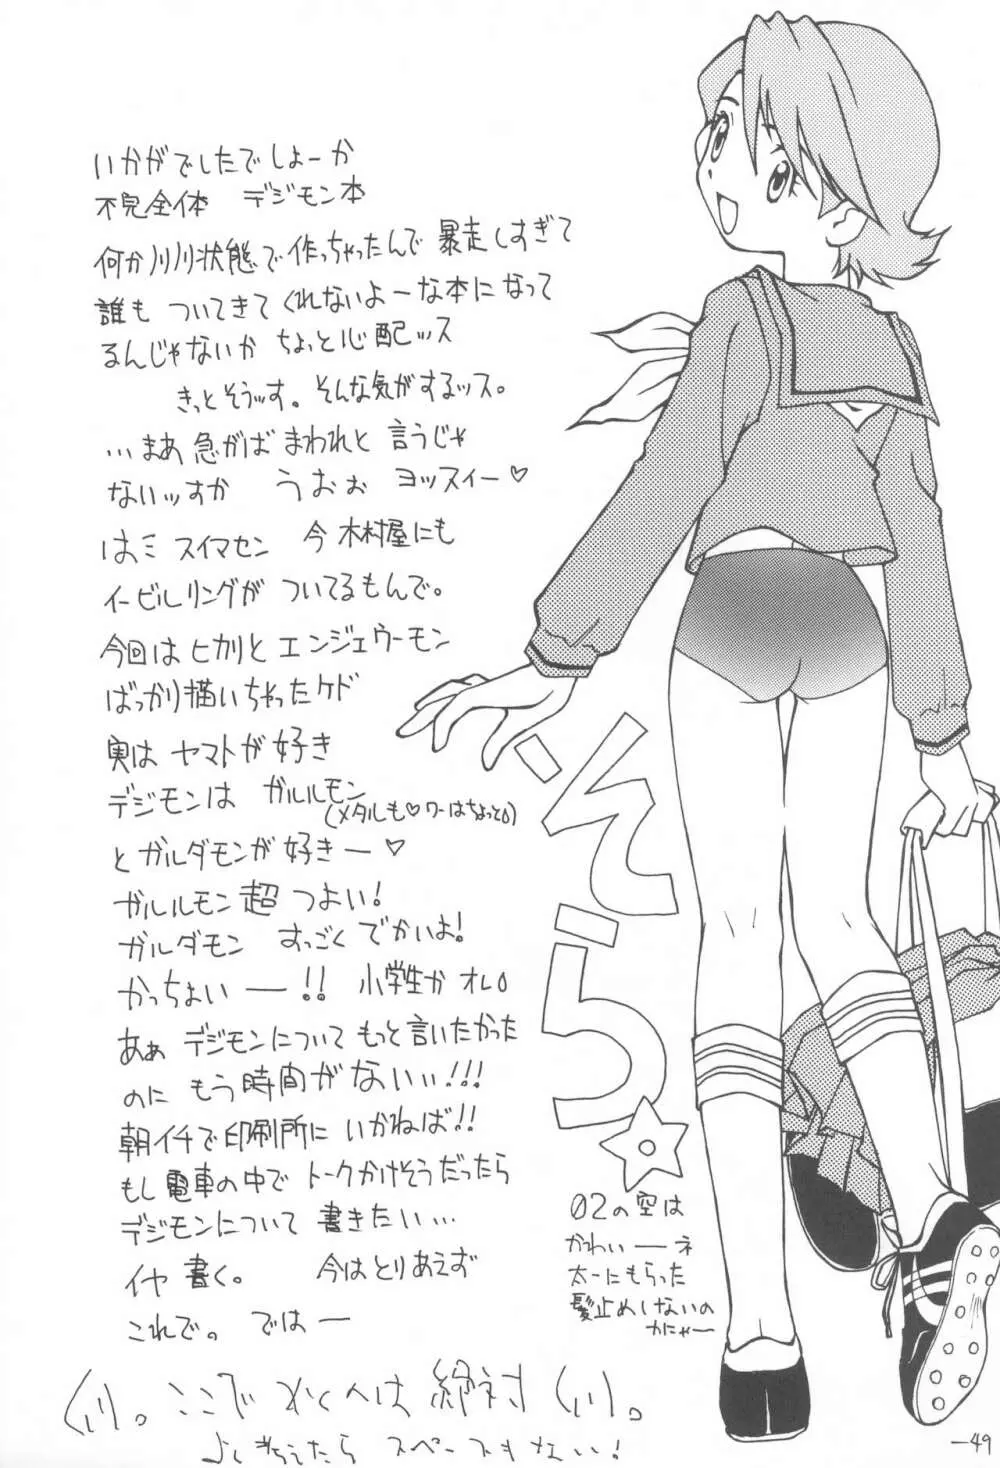 いかがでしたでしょーか
不完全体 デジモン本
何か川川状態で作っちゃったんで 暴走しすぎて
誰も ついてきてくれないよーな本になって
るんじゃないか ちょっと心配ッス
きっとそうッす。そんな気がするッス。
…まあ 急がば まわれと 言うじゃ
ないッすか うおぉ ヨッスィー♡
はミ スイマセン 今 木村屋にも
イービルリングが ついてるもんで。
今回は ヒカリと エンジェウーモン
ばっかり描いちゃったケド
実は ヤマトが好き
デジモンは ガルルモン
(メタルも♡ワーはちょっと)
とガルダモンが好きー♡
ガルルモン超 つよい!
ガルダモン すっごくでかいよ!
かっちょいー!! 小学生か オレ。
あぁ デジモンについて もっと言いたかった
のに もう時間がないぃ!!!
朝イチで印刷所に いかねば!!
もし電車の中で トークかけそうだったら
デジモンについて 書きたい…
イヤ 書く。 今はとりあえず
これで。 ではー
そら
02の空は
かわいーネ
太一にもらった
髪止めしないの
かにゃー
ここで 絶対
スペースもない!
-49